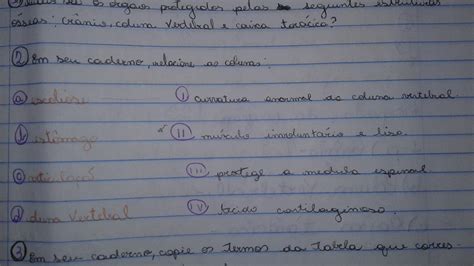 órgãos protegidos pelas seguintes estruturas
ósseas: crânio, coluna vertebral e caixa torácica?
② Em seu caderno, relacione as colunas:
ⓐ escoliose (I) curvatura anormal da coluna vertebral.
ⓑ estômago (II) músculo involuntário e liso.
ⓒ (III) protege a medula espinal
ⓓ coluna vertebral (IV) tecido cartilaginoso.
③ Em seu caderno, copie os termos da tabela que